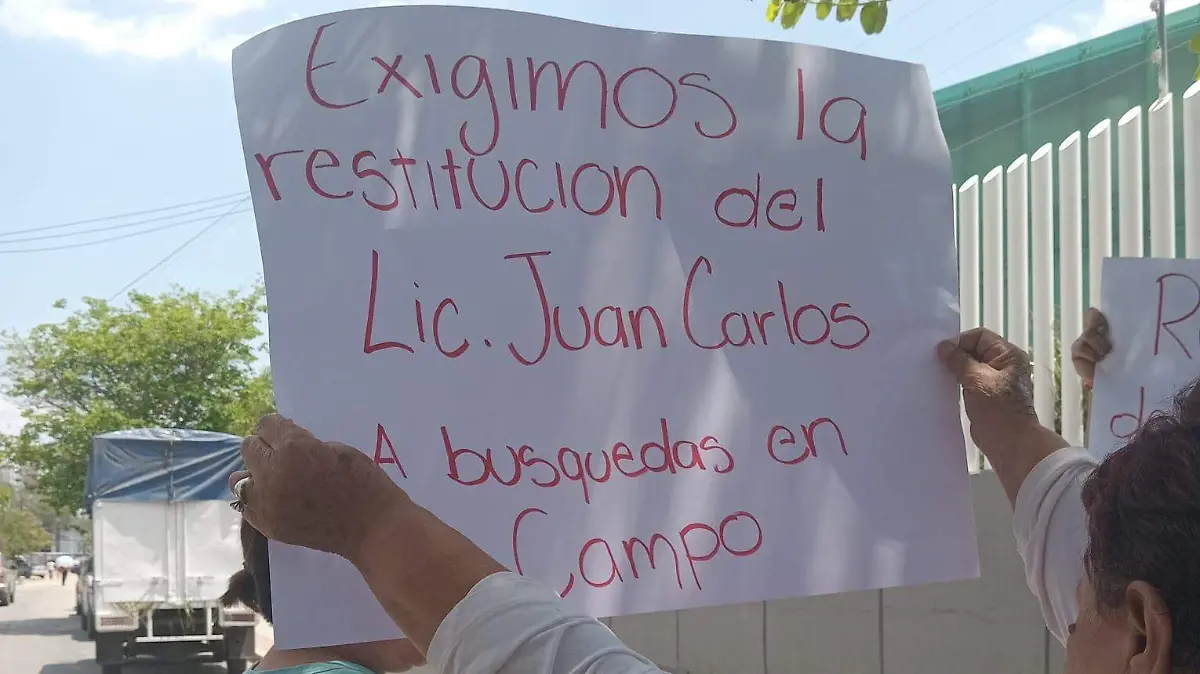 Exigimos la
restitución del
Lic. Juan Carlos
A busquedas en
Campo
R
d